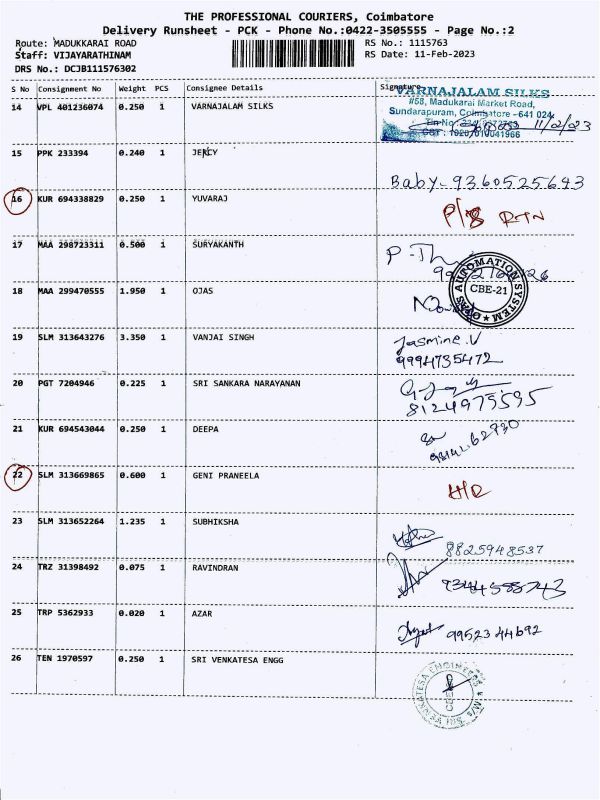 THE PROFESSIONAL COURIERS, Coimbatore
Delivery Runsheet - PCK - Phone No.:0422-3505555 - Page No.:2
Route: MADUKKARAI ROAD
RS No.: 1115763
Staff: VIJAYARATHINAM
RS Date: 11-Feb-2023
DRS No.: DCJB111576302
S No Consignment No Weight PCS Consignee Details Signature
14 VPL 401236074 0.250 1 VARNAJALAM SILKS
VARNAJALAM SILKS
#58, Madukarai Market Road,
Sundarapuram, Coimbatore - 641 024
11/2/23
15 PPK 233394 0.240 1 JERCY
Baby - 9360525643
16 KUR 694338829 0.250 1 YUVARAJ
RTN
17 MAA 298723311 0.500 1 SURYAKANTH
18 MAA 299470555 1.950 1 OJAS
OJAS AUTOMATION SYSTEM
CBE-21
19 SLM 313643276 3.350 1 VANJAI SINGH
Jasmine.V
9994735472
20 PGT 7204946 0.225 1 SRI SANKARA NARAYANAN
8124975595
21 KUR 694543044 0.250 1 DEEPA
22 SLM 313669865 0.600 1 GENI PRANEELA
23 SLM 313652264 1.235 1 SUBHIKSHA
8825948537
24 TRZ 31398492 0.075 1 RAVINDRAN
25 TRP 5362933 0.020 1 AZAR
9952344692
26 TEN 1970597 0.250 1 SRI VENKATESA ENGG